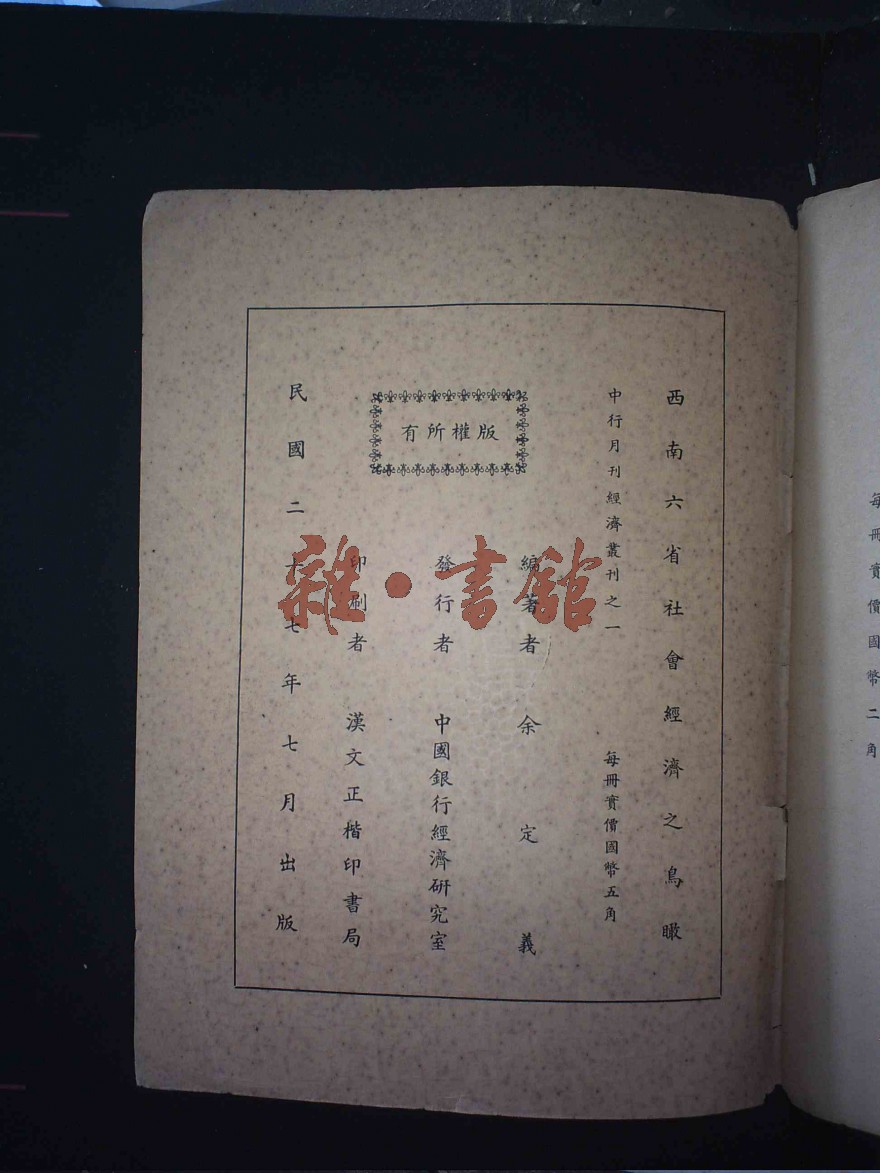 西南六省社會經濟之鳥瞰
中行月刊經濟叢刊之一
每冊實價國幣五角
版權所有
編著者 余定義
發行者 中國銀行經濟研究室
印刷者 漢文正楷印書局
民國二十七年七月出版
每冊實價國幣二角
雜·書館